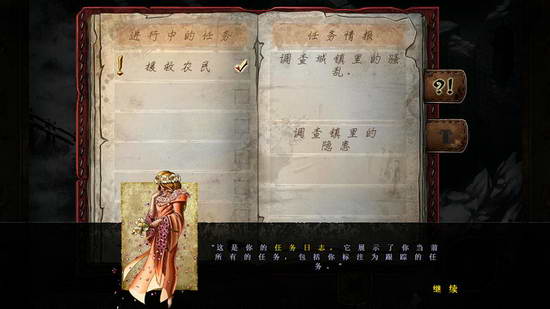 进行中的任务
任务情报
!
援救农民
调查城镇里的骚
乱.
?!
调查镇里的
隐患
"这是你的任务日志。它展示了你当前
所有的任务,包括你标注为跟踪的任
务。"
继续